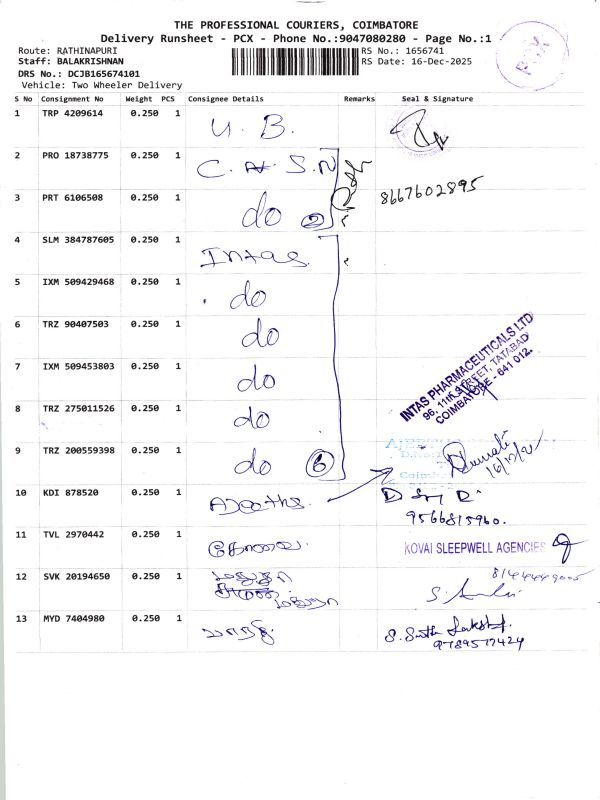 THE PROFESSIONAL COURIERS, COIMBATORE
Delivery Runsheet - PCX - Phone No.:9047080280 - Page No.:1
Route: RATHINAPURI
RS No.: 1656741
Staff: BALAKRISHNAN
RS Date: 16-Dec-2025
DRS No.: DCJB165674101
Vehicle: Two Wheeler Delivery
PCX
S No Consignment No Weight PCS Consignee Details Remarks Seal & Signature
1 TRP 4209614 0.250 1 U. B.
2 PRO 18738775 0.250 1 C. A. S. N
3 PRT 6106508 0.250 1 do 2 8667602895
4 SLM 384787605 0.250 1 Intas
5 IXM 509429468 0.250 1 do
6 TRZ 90407503 0.250 1 do
7 IXM 509453803 0.250 1 do
INTAS PHARMACEUTICALS LTD
96, 11th STREET, TATABAD
COIMBATORE - 641 012.
8 TRZ 275011526 0.250 1 do
9 TRZ 200559398 0.250 1 do 6
10 KDI 878520 0.250 1
9566815960.
11 TVL 2970442 0.250 1 KOVAI SLEEPWELL AGENCIES
12 SVK 20194650 0.250 1
13 MYD 7404980 0.250 1
9789577424